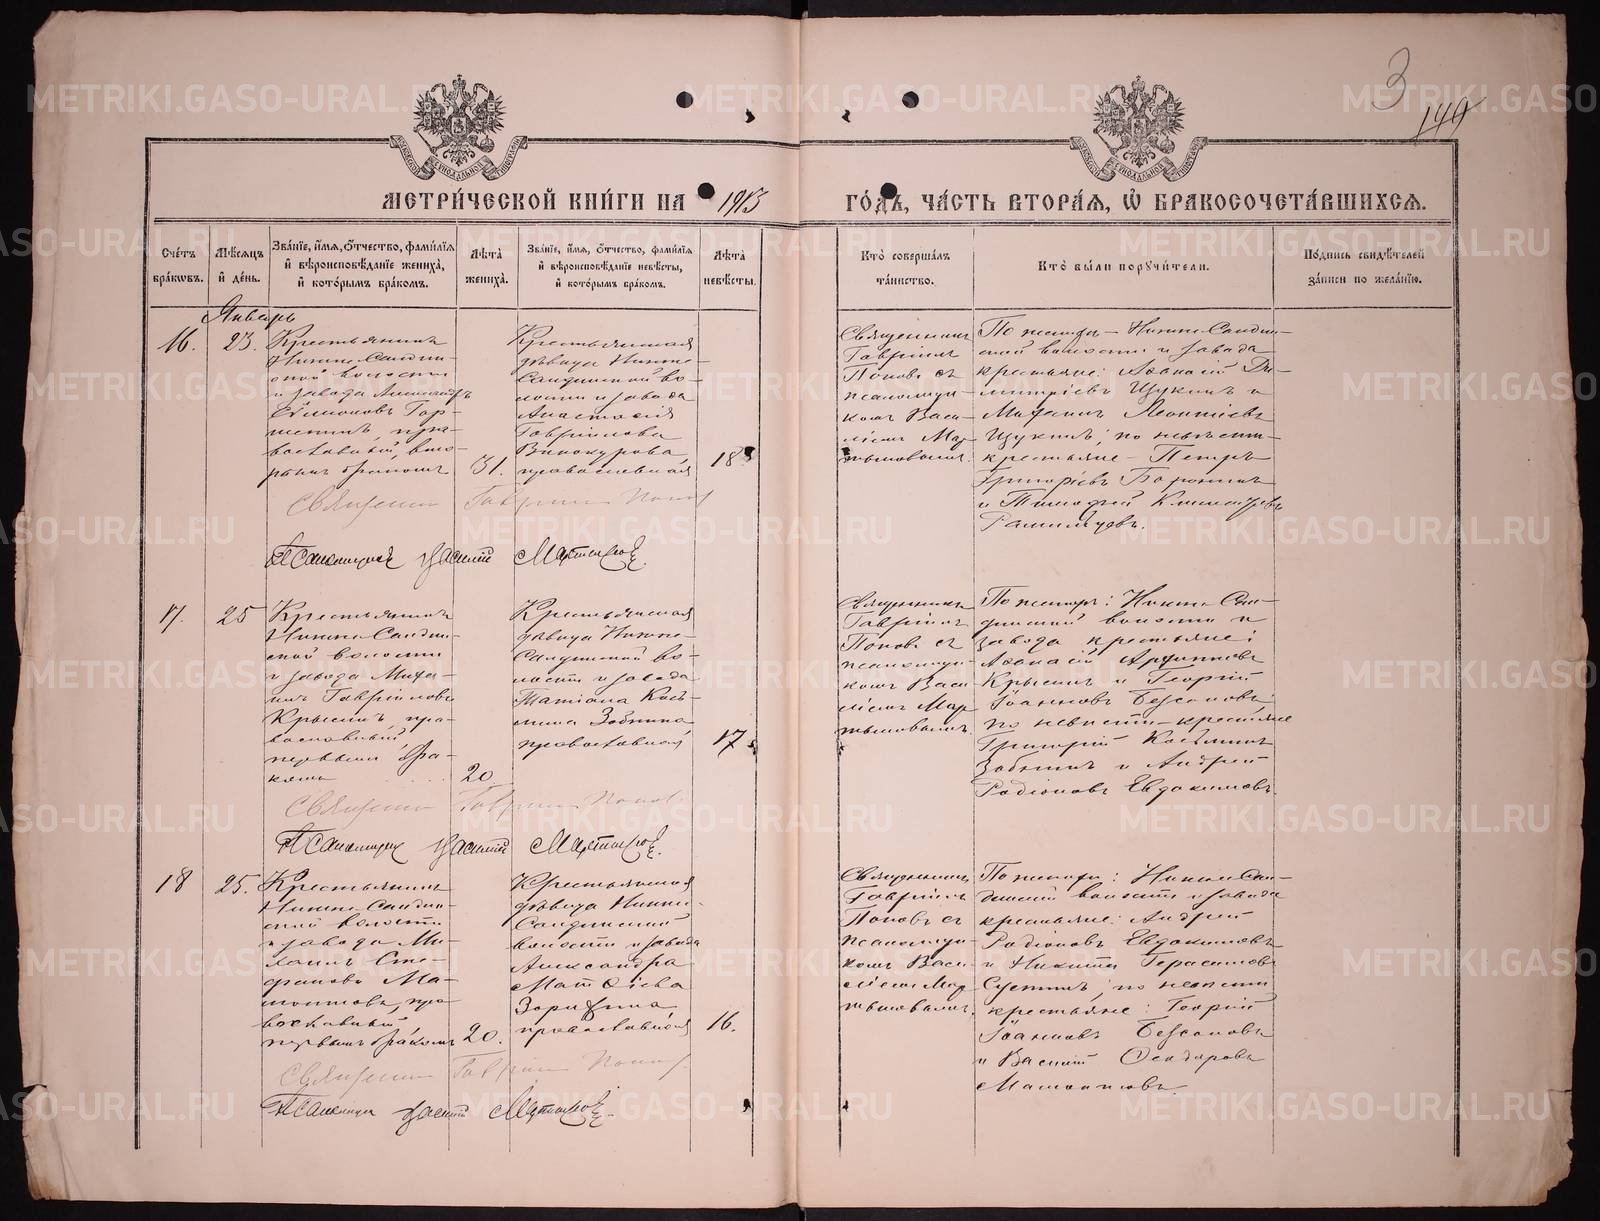 3
149
МЕТРИ́ЧЕСКОЙ КНИ́ГИ НА 1913 ГО́ДЪ, ЧА́СТЬ ВТОРА́Я, Ѡ БРАКОСОЧЕТА́ВШИХСЯ.
Сче́тъ бра́ковъ.
Мѣ́сяцъ и҆ де́нь.
Зва́нїе, и҆́мя, ѻ҆́тчество, фами́лїя и҆ вѣроисповѣ́данїе жениха̀, и҆ кото́рымъ бра́комъ.
Лѣ́та жениха̀.
Зва́нїе, и҆́мя, ѻ҆́тчество, фами́лїя и҆ вѣроисповѣ́данїе невѣ́сты, и҆ кото́рымъ бра́комъ.
Лѣ́та невѣ́сты.
Кто̀ соверша́лъ та́инство.
Кто̀ бы́ли порꙋчи́тели.
По́дпись свидѣ́телей за́писи по жела́нїю.
Январь
16.
23.
Крестьянинъ
Нижне-Салдин-
ской волости
и завода Александръ
Симоновъ Гор-
шенинъ, пра-
вославный, вто-
рымъ бракомъ
31.
Крестьянская
дѣвица Нижне-
Салдинской во-
лости и завода
Анастасія
Гавріилова
Винокурова,
православная
18
Священникъ
Гавріилъ
Поповъ съ
псаломщи-
комъ Васи-
ліемъ Мар-
тыновымъ.
По женихѣ – Нижне-Салдин-
ской волости и завода
крестьяне: Аѳанасій Ди-
митріевъ Щукинъ и
Михаилъ Леонтіевъ
Щукинъ; по невѣстѣ –
крестьяне – Петръ
Григоріевъ
и Тимофей
Священникъ Гавріилъ Поповъ
Псаломщикъ Василій Мартыновъ.
17.
25
Крестьянинъ
Нижне-Салдин-
ской волости
и завода Миха-
илъ Гавріиловъ
Крысинъ, пра-
вославный,
первымъ бра-
комъ
20.
Крестьянская
дѣвица Нижне-
Салдинской во-
лости и завода
Татіана Кось-
мина Забнина
православная
17.
Священникъ
Гавріилъ
Поповъ съ
псаломщи-
комъ Васи-
ліемъ Мар-
тыновымъ.
По женихѣ: Нижне-Сал-
динской волости и
завода крестьяне:
Аѳанасій
Крысинъ и Георгій
Іоанновъ Безсоновъ;
по невѣстѣ – крестьяне
Григорій Косьминъ
Забнинъ и Андрей
Родіоновъ Евдокимовъ.
Священникъ Гавріилъ Поповъ
Псаломщикъ Василій Мартыновъ.
18
25.
Крестьянинъ
Нижне-Салдин-
ской волости
и завода Ми-
хаилъ Сте-
фановъ Ма-
, пра-
вославный
первымъ бракомъ
20.
Крестьянская
дѣвица Нижне-
Салдинской
волости и завода
Александра
Матѳіева
Зорихина
православная
16.
Священникъ
Гавріилъ
Поповъ съ
псаломщи-
комъ Васи-
ліемъ Мар-
тыновымъ.
По женихѣ: Нижне-Сал-
динской волости и завода
крестьяне: Андрей
Родіоновъ Евдокимовъ
и Никита Герасимовъ
; по невѣстѣ
крестьяне: Георгій
Іоанновъ Безсоновъ
и Василій Ѳеодоровъ
Священникъ Гавріилъ Поповъ.
Псаломщикъ Василій Мартыновъ.
METRIKI.GASO-URAL.RU